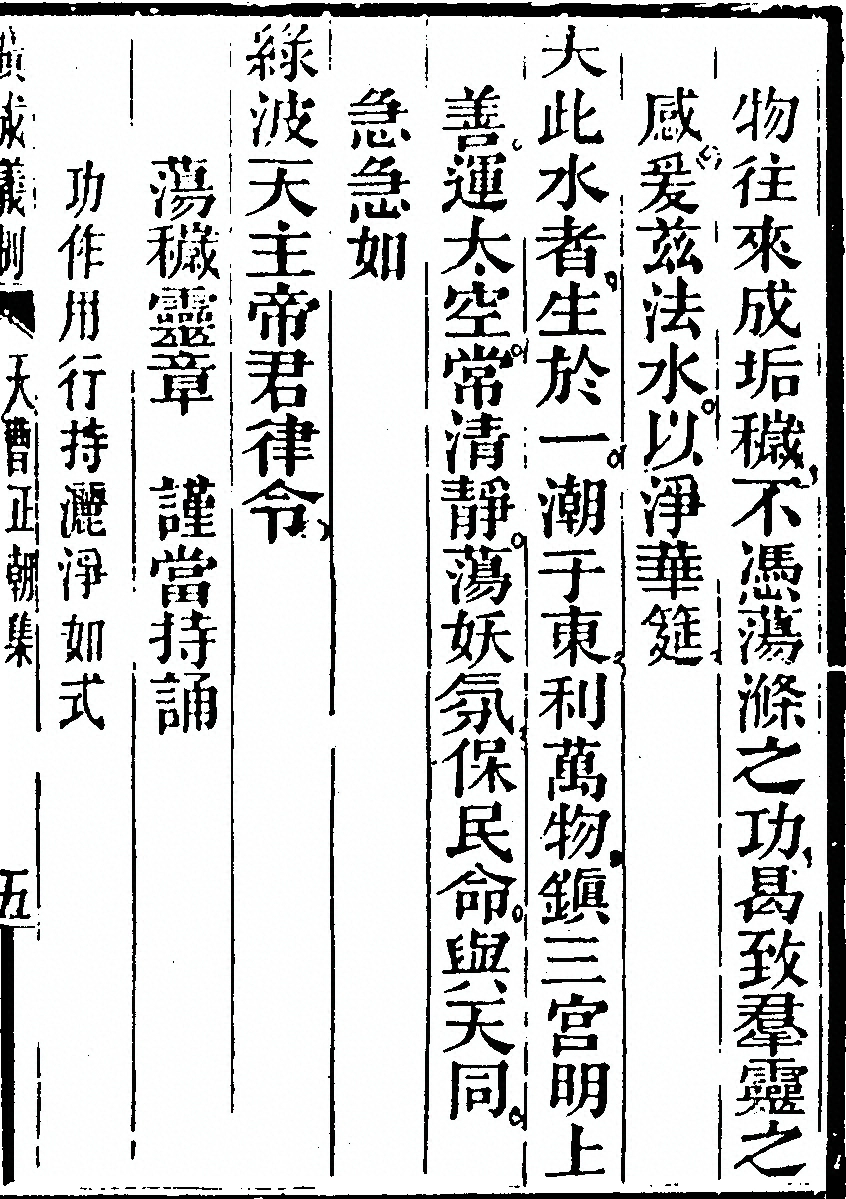 物往來成垢穢不憑蕩滌之功曷致羣靈之
感爰茲法水以淨華筵
夫此水者生於一潮于東利萬物鎮三宮明上
善運太空常清靜蕩妖氛保民命與天同
急急如
綠波天主帝君律令
蕩穢靈章　謹當持誦
功作用行持灑淨如式
廣成儀制　天曹正朝集　五